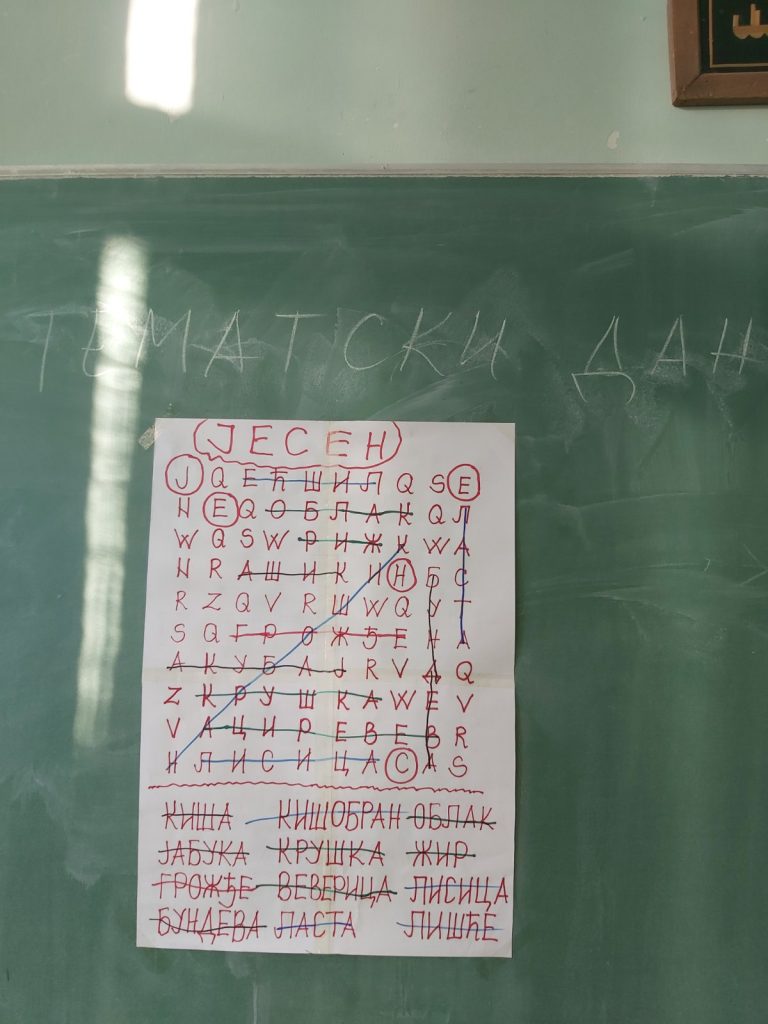 ТЕМАТСКИ ДАН
ЈЕСЕН
Ј Q Е Ћ Ш И Л Q S Е
N Е Q О Б Л А К Q Л
W Q S W Р И Ж К W А
N R А Ш И К И Н Б С
R Z Q V R Ш W Q У Т
S Q Г Р О Ж Ђ Е Н А
А К У Б А Ј R V Д Q
Z К Р У Ш К А W Е V
V А Ц И Р Е В Е В R
Н Л И С И Ц А С А S
КИША КИШОБРАН ОБЛАК
ЈАБУКА КРУШКА ЖИР
ГРОЖЂЕ ВЕВЕРИЦА ЛИСИЦА
БУНДЕВА ЛАСТА ЛИШЋЕ